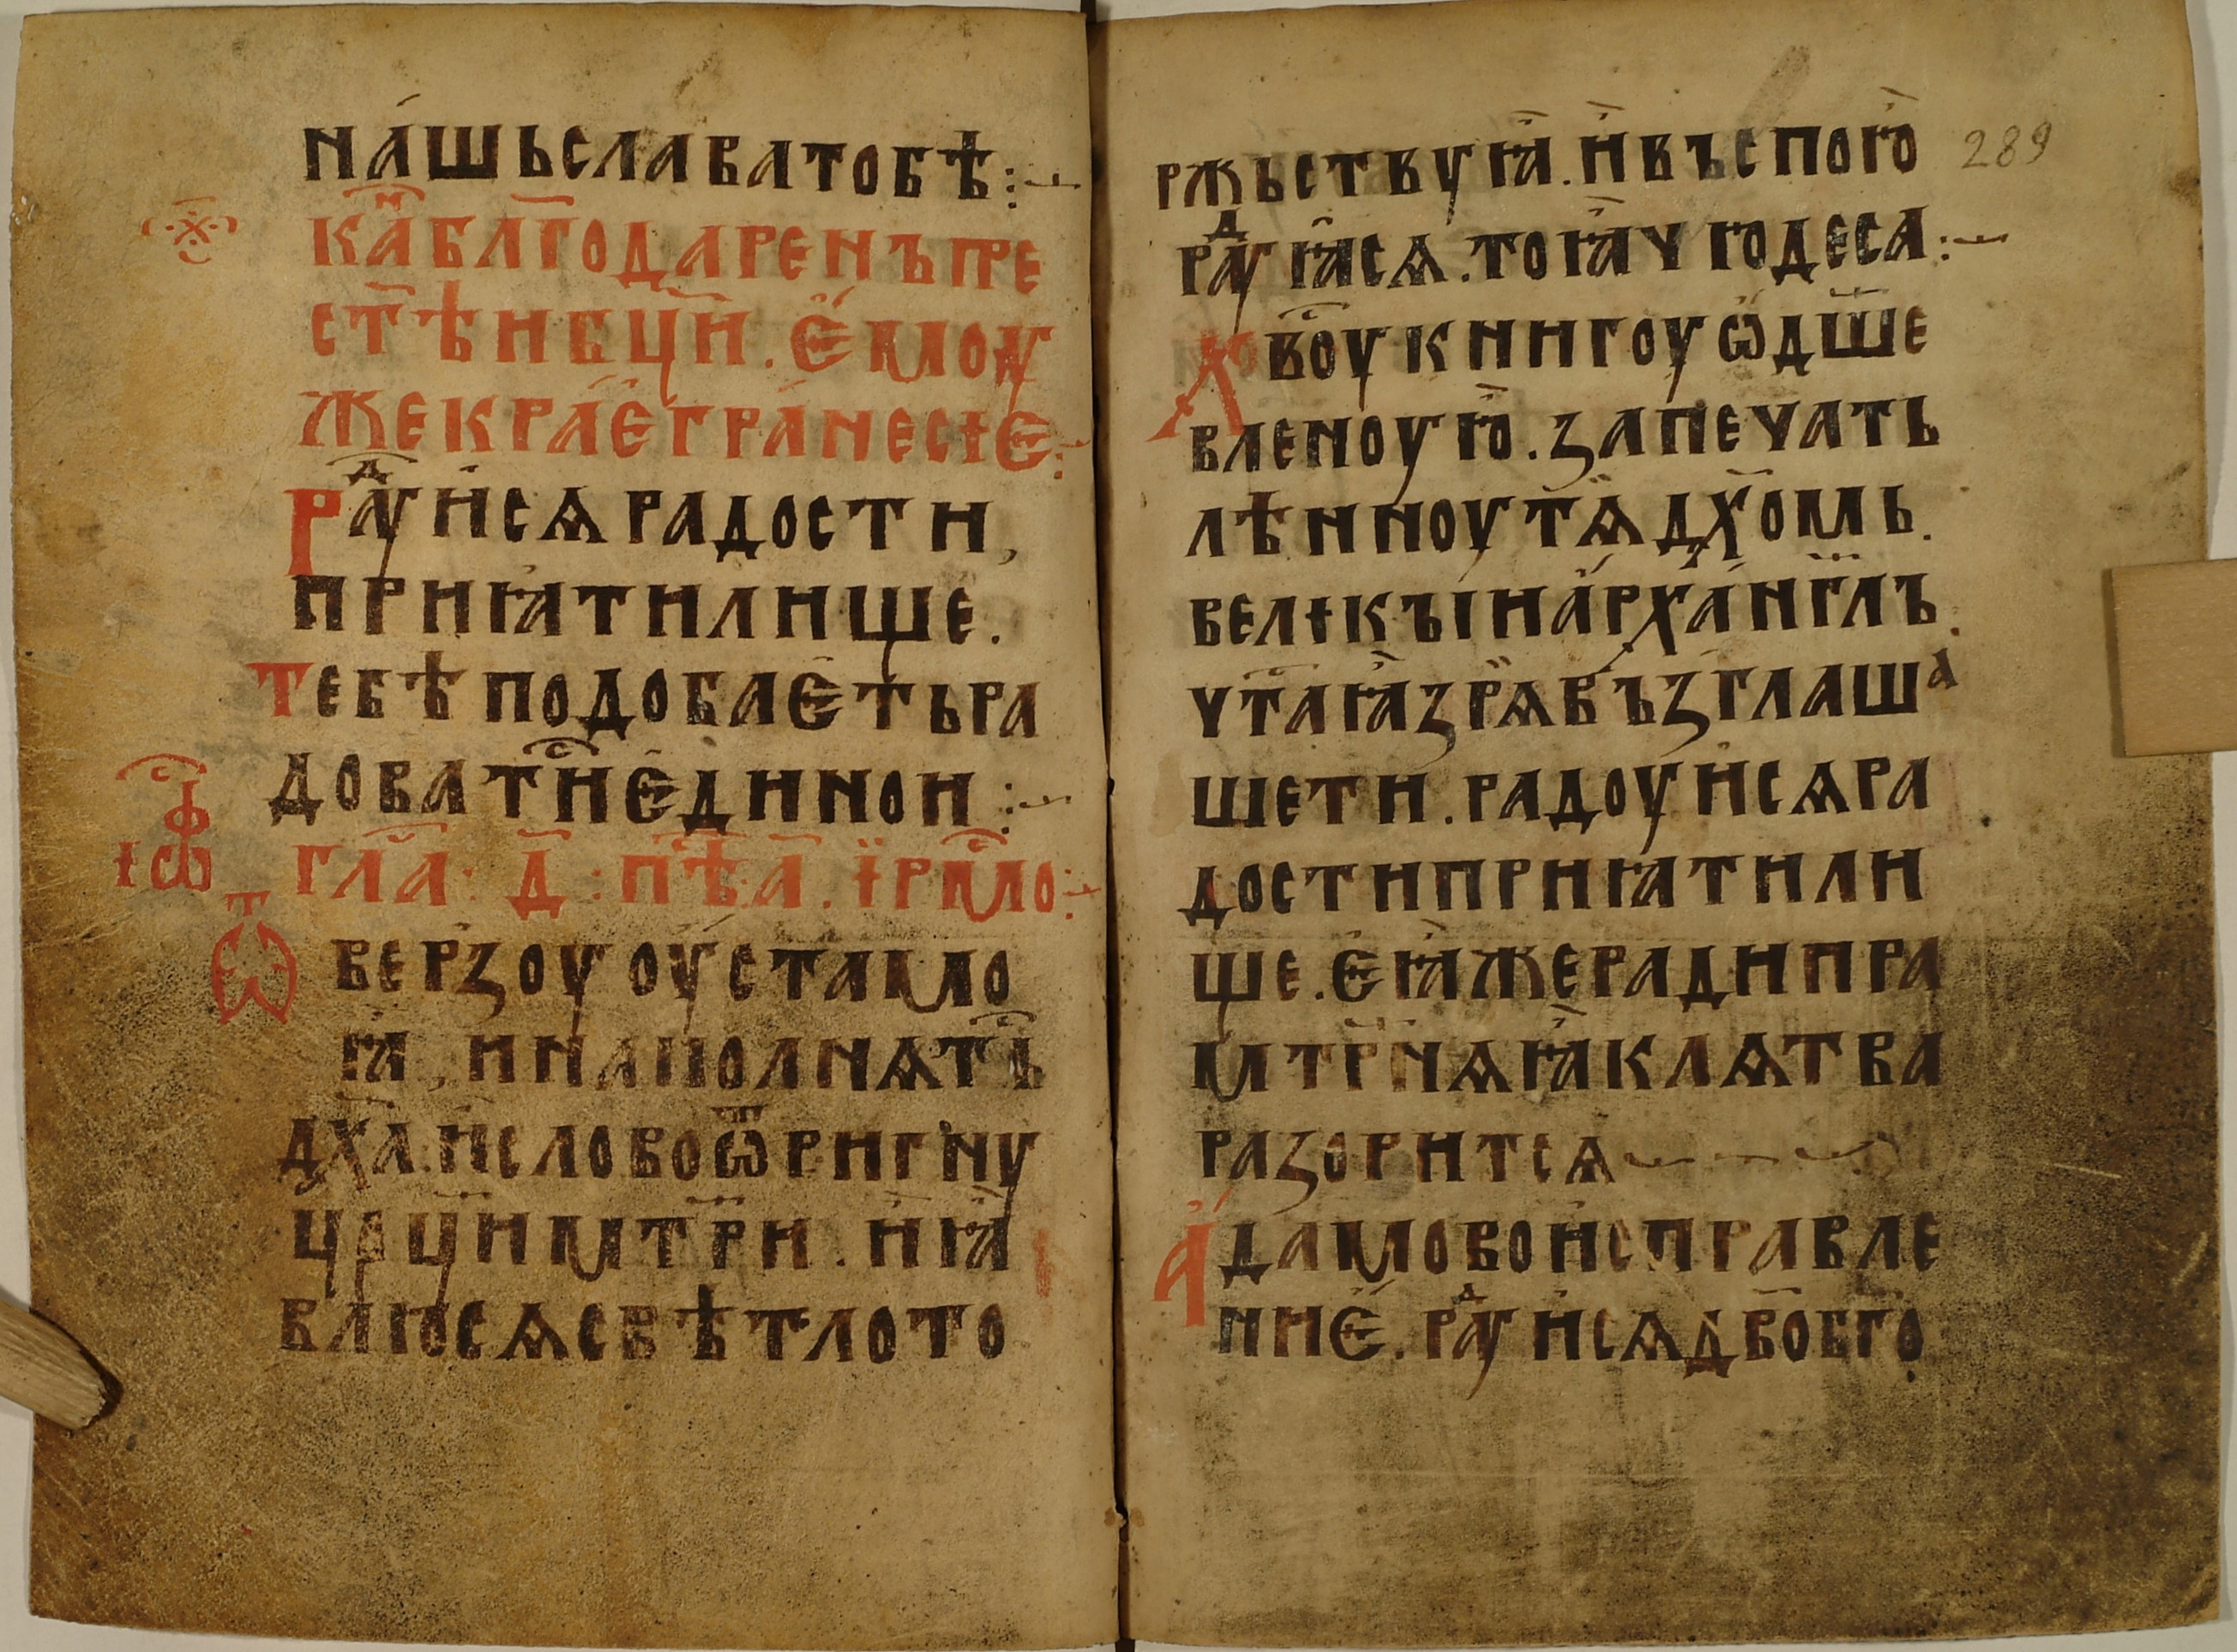 на́шь слава тобѣ:~
ка̑н бл҃годаренъ пре
ст҃ѣи бц҃и. є҆́моу
же краєгранесїє:~
Раⷣуисѧ радости,
приꙗтилище.
Тебѣ подобаєть ра
доватиⷭ єдинои:~
іѡсⷴ҇
гла҃: д҃: пѣⷭ҇ а҃. ї҆рмоⷭ:~
Ѿверзоу оуста мо
ꙗ, и наполнѧтьⷭ
дх҃а. и слово ѿригну
цр҃ци мт҃ри. и ꙗ
влюсѧ свѣтло то
289
ржьствуꙗ. и въспою
раⷣуꙗсѧ. тоꙗ чюдеса:~
Двоуⷭ книгоу ѡ҆дш҃е
вленоую. запечать
лѣнноу тѧ дх҃омь.
велїкъıи архан҃глъ.
чтⷭаꙗ зрѧ въззглаша
шети. радоуисѧ ра
дости приꙗтили
ще. єꙗже ради пра
мт҃рнѧꙗ клѧтва
разоритсѧ
Адамово исправле
ниє. раⷣуисѧ дв҃о бг҃о